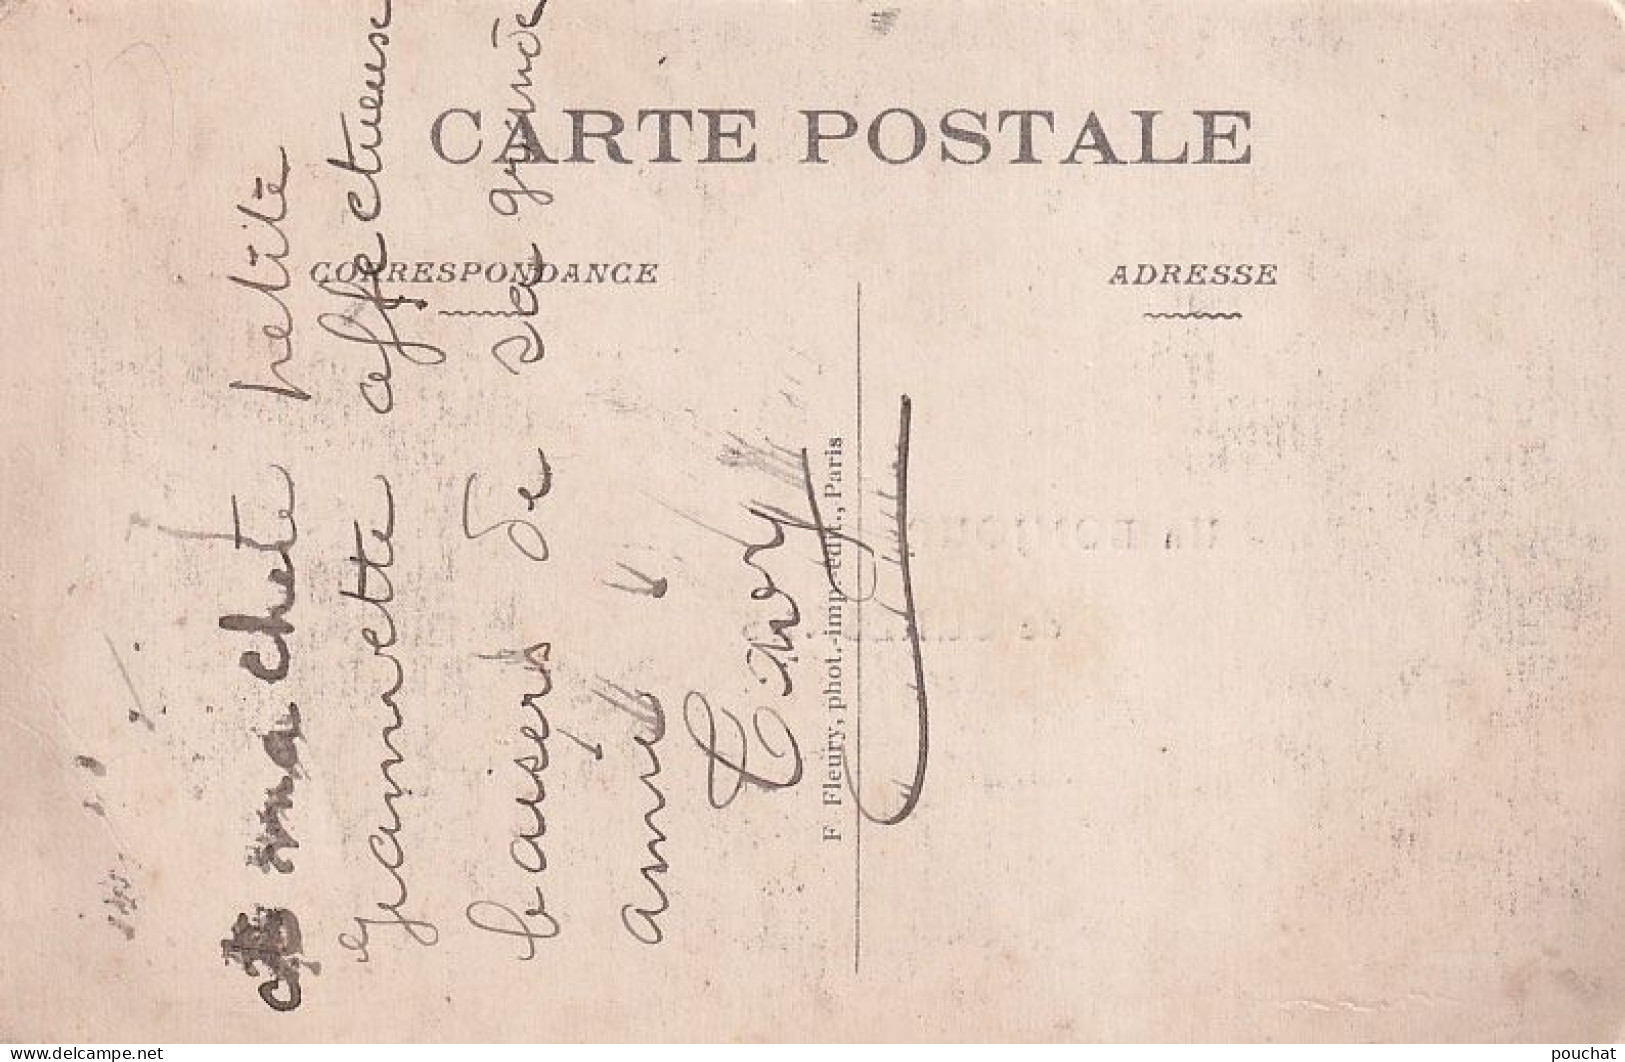 CARTE POSTALE
CORRESPONDANCE
ADRESSE
A ma chere petite
Jeannette affectueuse
baisers de sa grande
amie
F. Fleury, phot.-imp.-édit., Paris
de
www.delcampe.net
pouchat